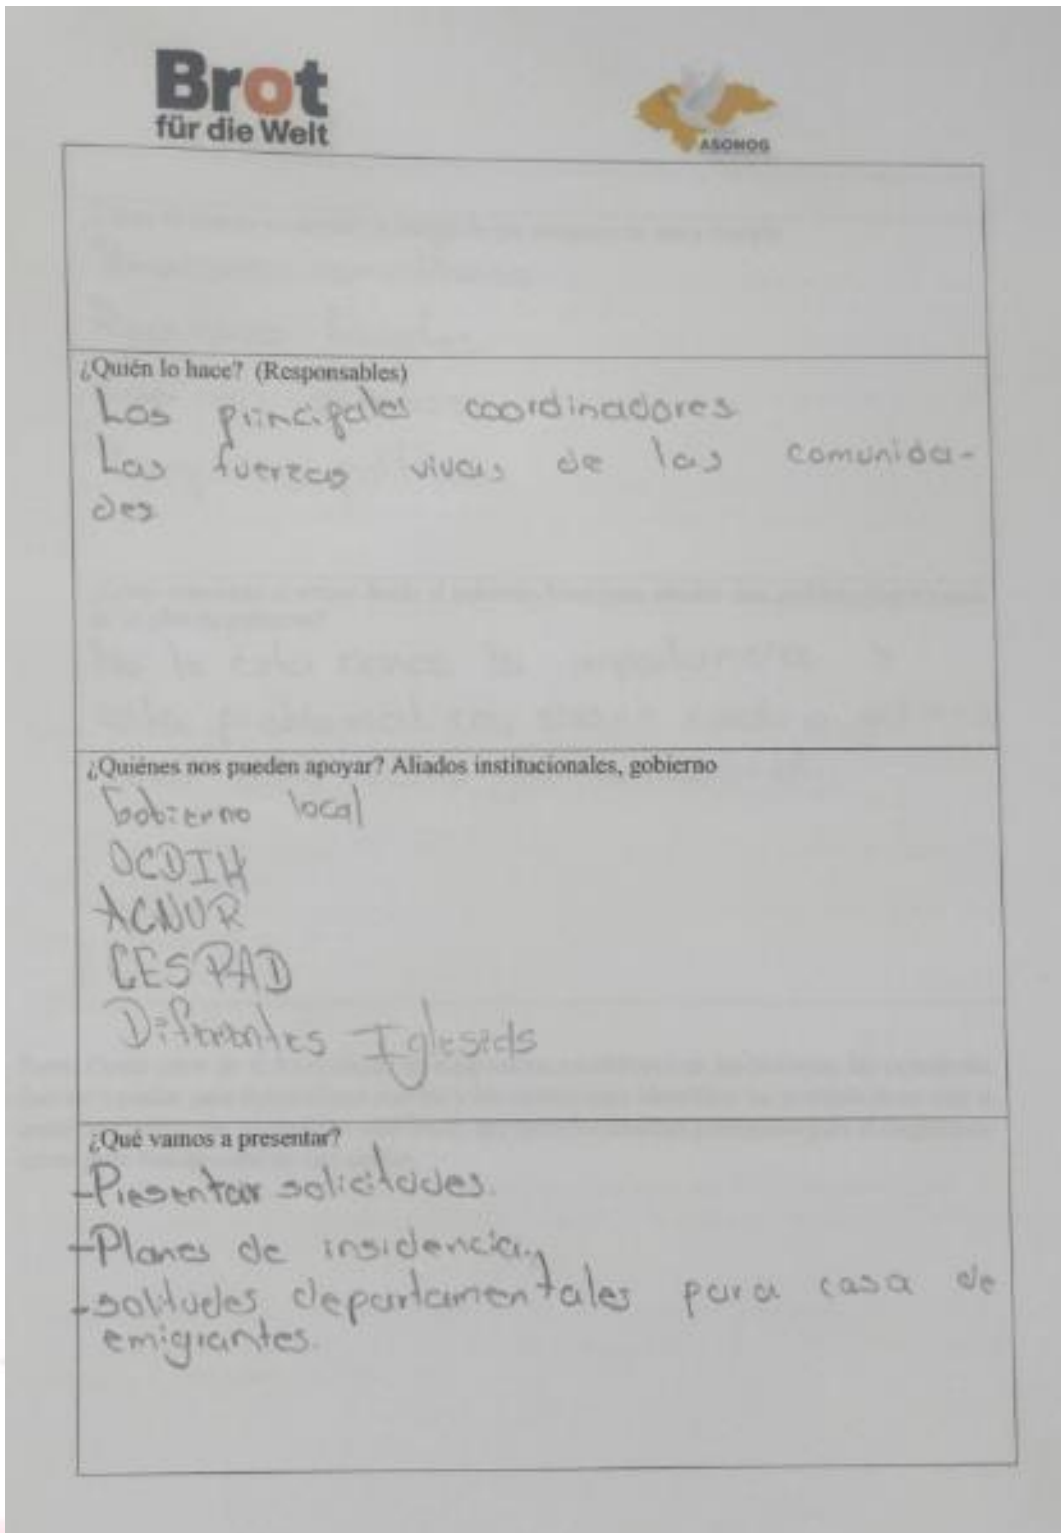 Brot
für die Welt
ASONOG
¿Quién lo hace? (Responsables)
Los principales coordinadores
Las fuerzas vivas de las comunida-
des
¿Quiénes nos pueden apoyar? Aliados institucionales, gobierno
Gobierno local
OCDIH
ACNUR
CESPAD
Diferentes Iglesias
¿Qué vamos a presentar?
-Presentar solicitudes.
-Planes de insidencia.
-solitudes departamentales para casa de
emigrantes.